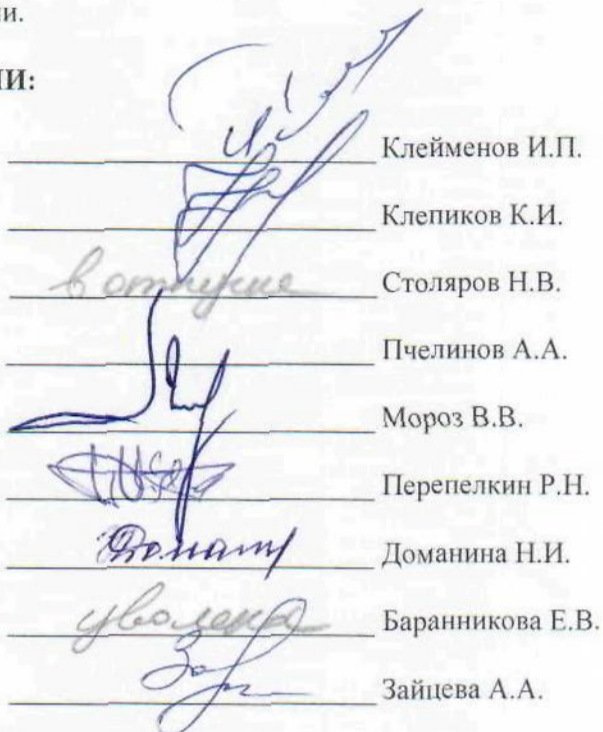 ии.
ИИ:
Клейменов И.П.
Клепиков К.И.
в отпуске Столяров Н.В.
Пчелинов А.А.
Мороз В.В.
Перепелкин Р.Н.
Доманина Н.И.
уволена Баранникова Е.В.
Зайцева А.А.